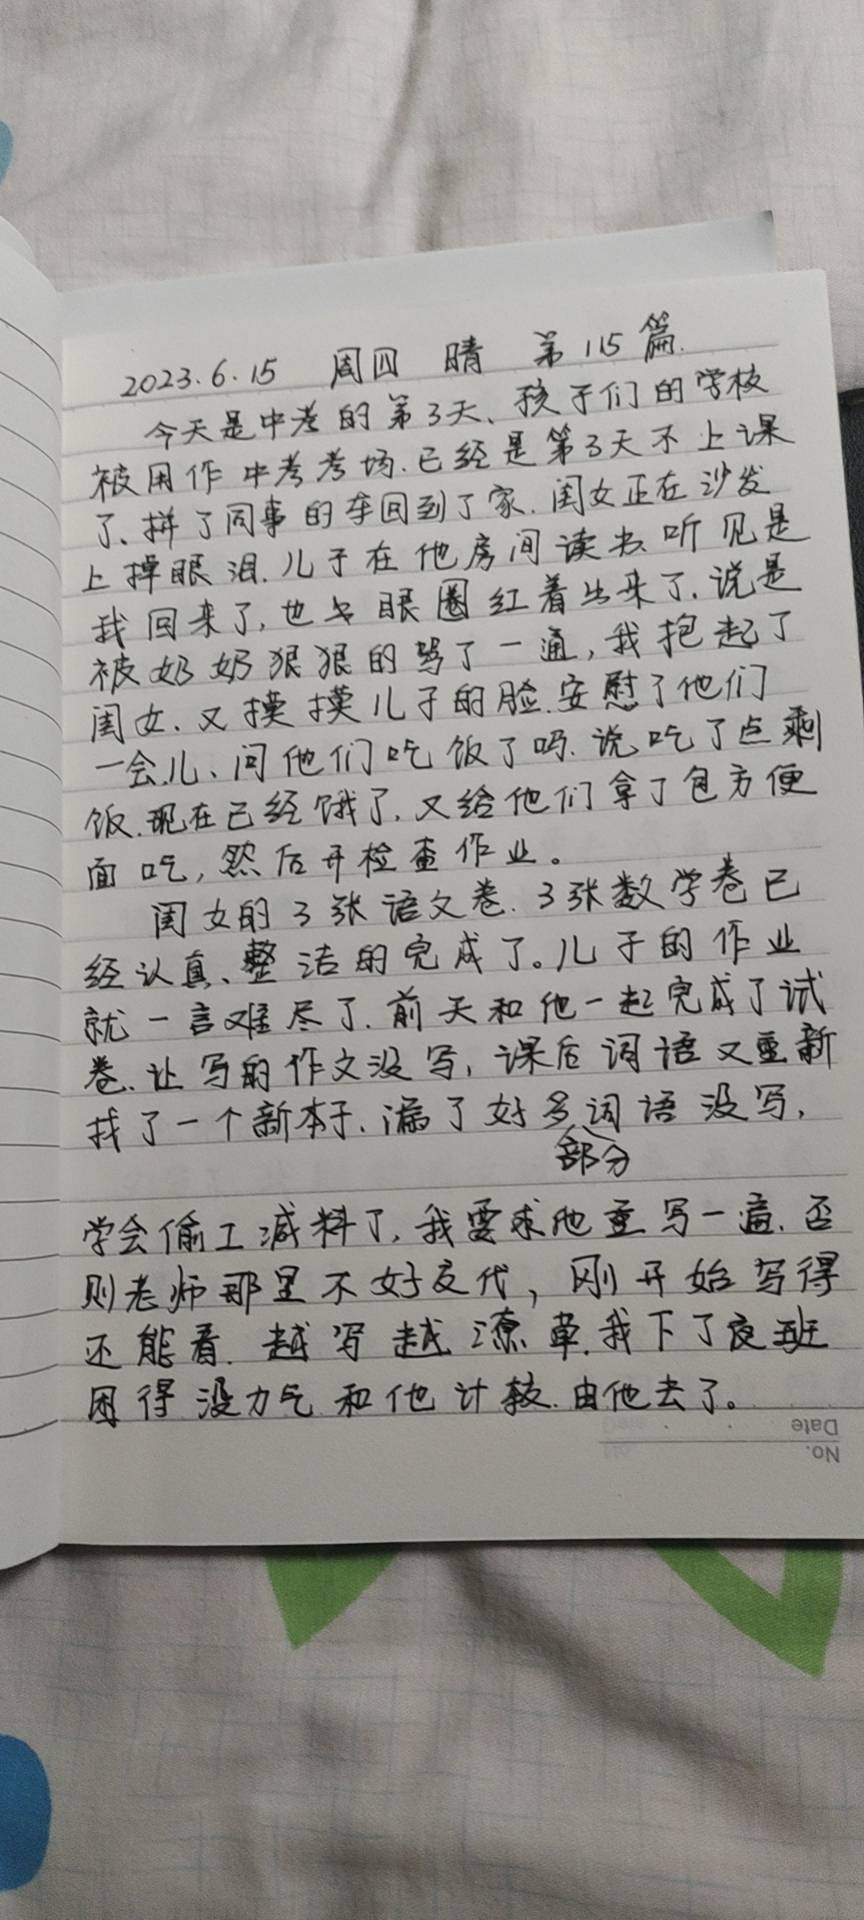 2023.6.15 周四 晴 第115篇.
今天是中考的第3天、孩子们的学校
被用作中考考场.已经是第3天不上课
了、拼了同事的车回到了家.闺女正在沙发
上掉眼泪.儿子在他房间读书.听见是
我回来了,也 眼圈红着出来了.说是
被奶奶狠狠的骂了一通,我抱起了
闺女.又摸摸儿子的脸.安慰了他们
一会儿、问他们吃饭了吗.说吃了点剩
饭.现在已经饿了.又给他们拿了包方便
面吃,然后开检查作业。
闺女的3张语文卷.3张数学卷已
经认真、整洁的完成了。儿子的作业
就一言难尽了.前天和他一起完成了试
卷.让写的作文没写,课后词语又重新
找了一个新本子.漏了好多词语没写,
部分
学会偷工减料了,我要求他重写一遍.否
则老师那里不好交代,刚开始写得
还能看.越写越潦草.我下了夜班
困得没力气和他计较.由他去了。
Date
No.